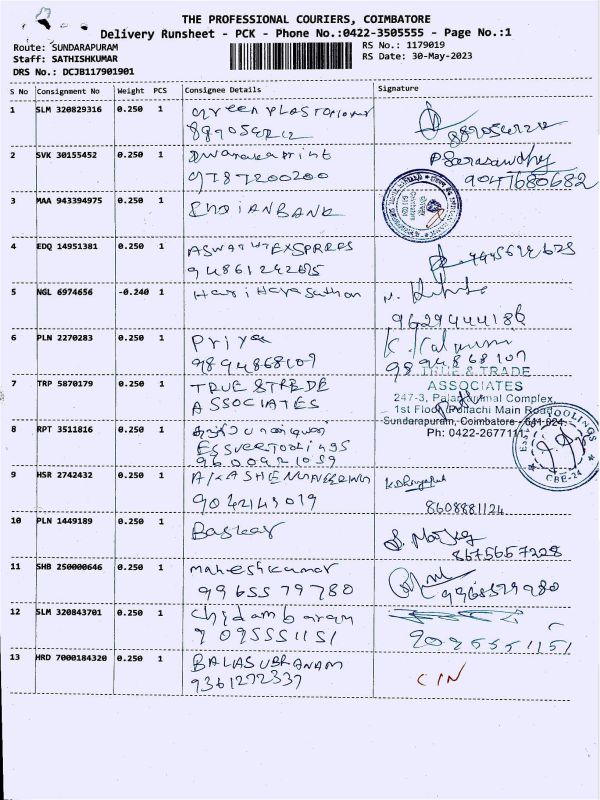 THE PROFESSIONAL COURIERS, COIMBATORE
Delivery Runsheet - PCK - Phone No.:0422-3505555 - Page No.:1
Route: SUNDARAPURAM RS No.: 1179019
Staff: SATHISHKUMAR RS Date: 30-May-2023
DRS No.: DCJB117901901
S No Consignment No Weight PCS Consignee Details Signature
1 SLM 320829316 0.250 1
2 SVK 30155452 0.250 1 Dwaraka print
9787200200 9047680682
3 MAA 943394975 0.250 1 INDIANBANK
4 EDQ 14951381 0.250 1 ASWATHTEXSPRERS
5 NGL 6974656 -0.240 1
9629444186
6 PLN 2270283 0.250 1 Priya
9894868107 9894868107
TRUE & TRADE
7 TRP 5870179 0.250 1 TRUE & TREDE ASSOCIATES
ASSOCIATES 247-3, Palaniyammal Complex,
1st Floor, Pollachi Main Road
Sundarapuram, Coimbatore - 641 024.
Ph: 0422-2677111
8 RPT 3511816 0.250 1
ESSVERTOOLINGS
9600921059
CBE-24
9 HSR 2742432 0.250 1
9042143019 8608881124
10 PLN 1449189 0.250 1 Baskar
8675657228
11 SHB 250000646 0.250 1 maheshkumar
9965579780
12 SLM 320843701 0.250 1 Chidambaram
7095551151 9095551151
13 HRD 7000184320 0.250 1 BALASUBRANAM
9361272337 CIN